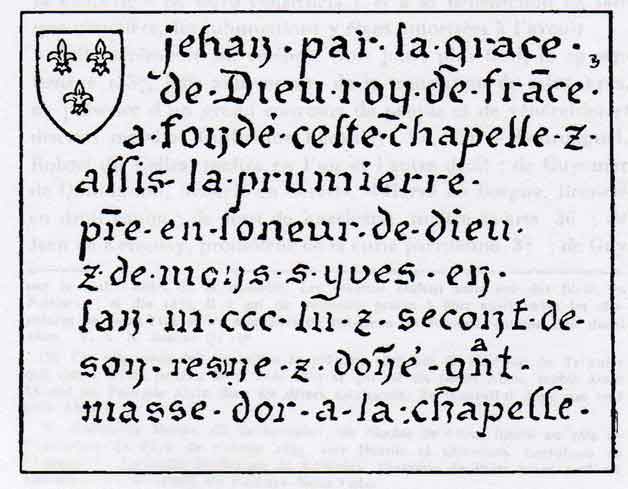 jehan · par · la · grace ·
de · Dieu · roy · de · frāce ·
a · fondé · ceste · chapelle · z ·
assis · la · prumierre
pre · en · loneur · de · dieu :
z · de · mons · s · yves · en ·
lan · m · ccc · lii · z · second · de ·
son · resne · z · doñé · gᵃnt ·
masse · dor · a · la : chapelle ·